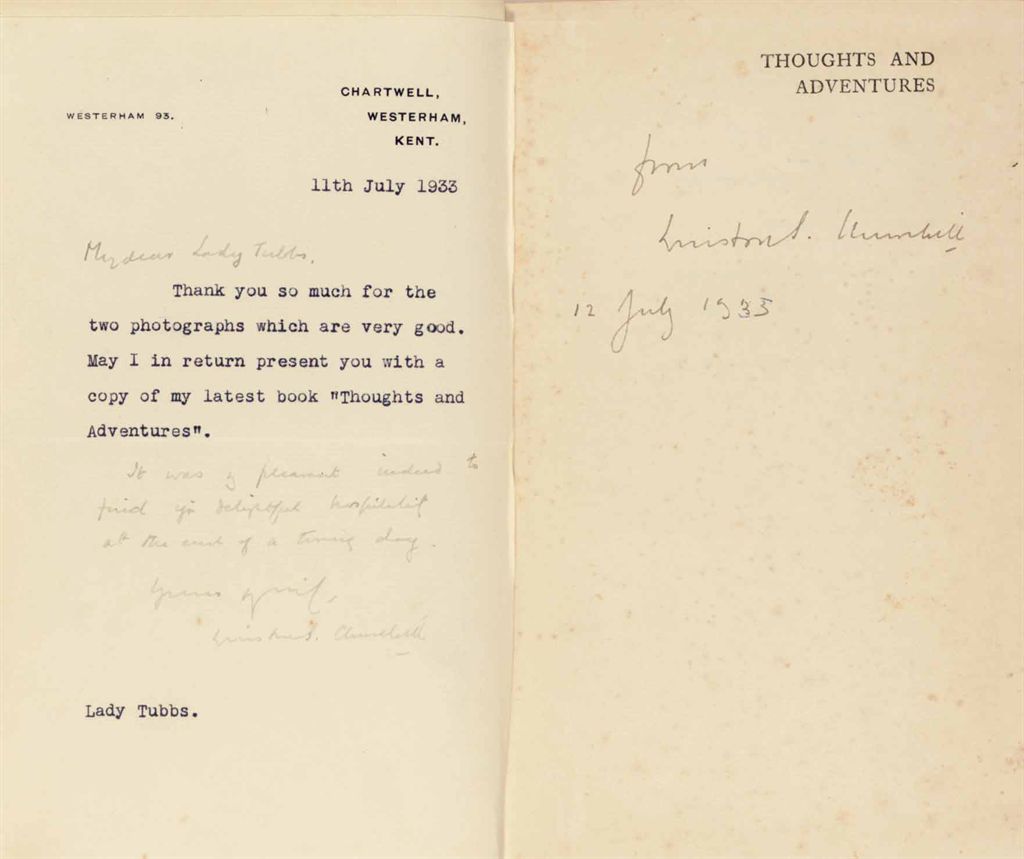 CHARTWELL,
WESTERHAM 93.
WESTERHAM,
KENT.
11th July 1933
My dear Lady Tubbs,
Thank you so much for the
two photographs which are very good.
May I in return present you with a
copy of my latest book "Thoughts and
Adventures".
It was pleasant indeed to
find delightful hospitality
at the end of a tiring day.
Yours
Winston S. Churchill
Lady Tubbs.
THOUGHTS AND
ADVENTURES
from
Winston S. Churchill
12 July 1933